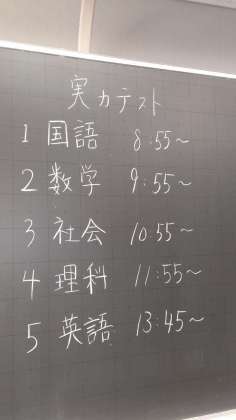 実力テスト
1 国語 8:55～
2 数学 9:55～
3 社会 10:55～
4 理科 11:55～
5 英語 13:45～